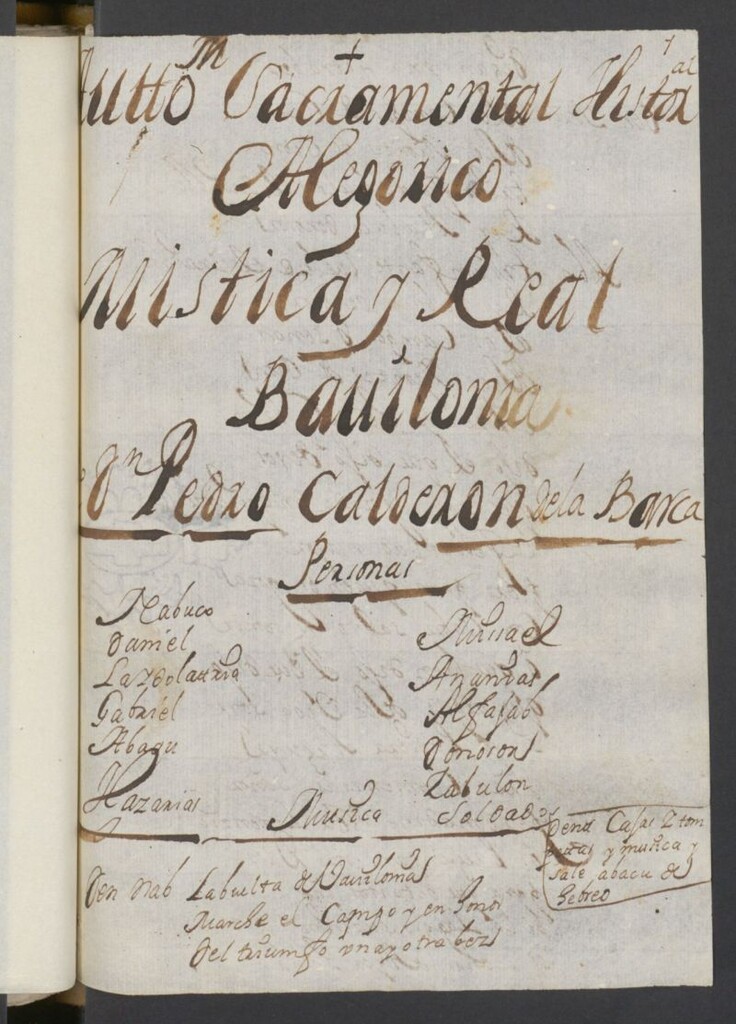 Autto Sacramental Histoxal
Alegorico
Mistica y Real
Bauilonia
Dn Pedro Calderon dela Barca
Personas
Nabuco
Daniel
La Ydolatria
Gabriel
Abacu
Hazarias
Musica
Missael
Ananias
Alfajad
Zabulon
Soldados
Caxas
y musica y
sale abacu de
hebreo
Den Nab La buelta de Bauilonia
Marche el Campo y en honor
Del triumfo vna y otra bez